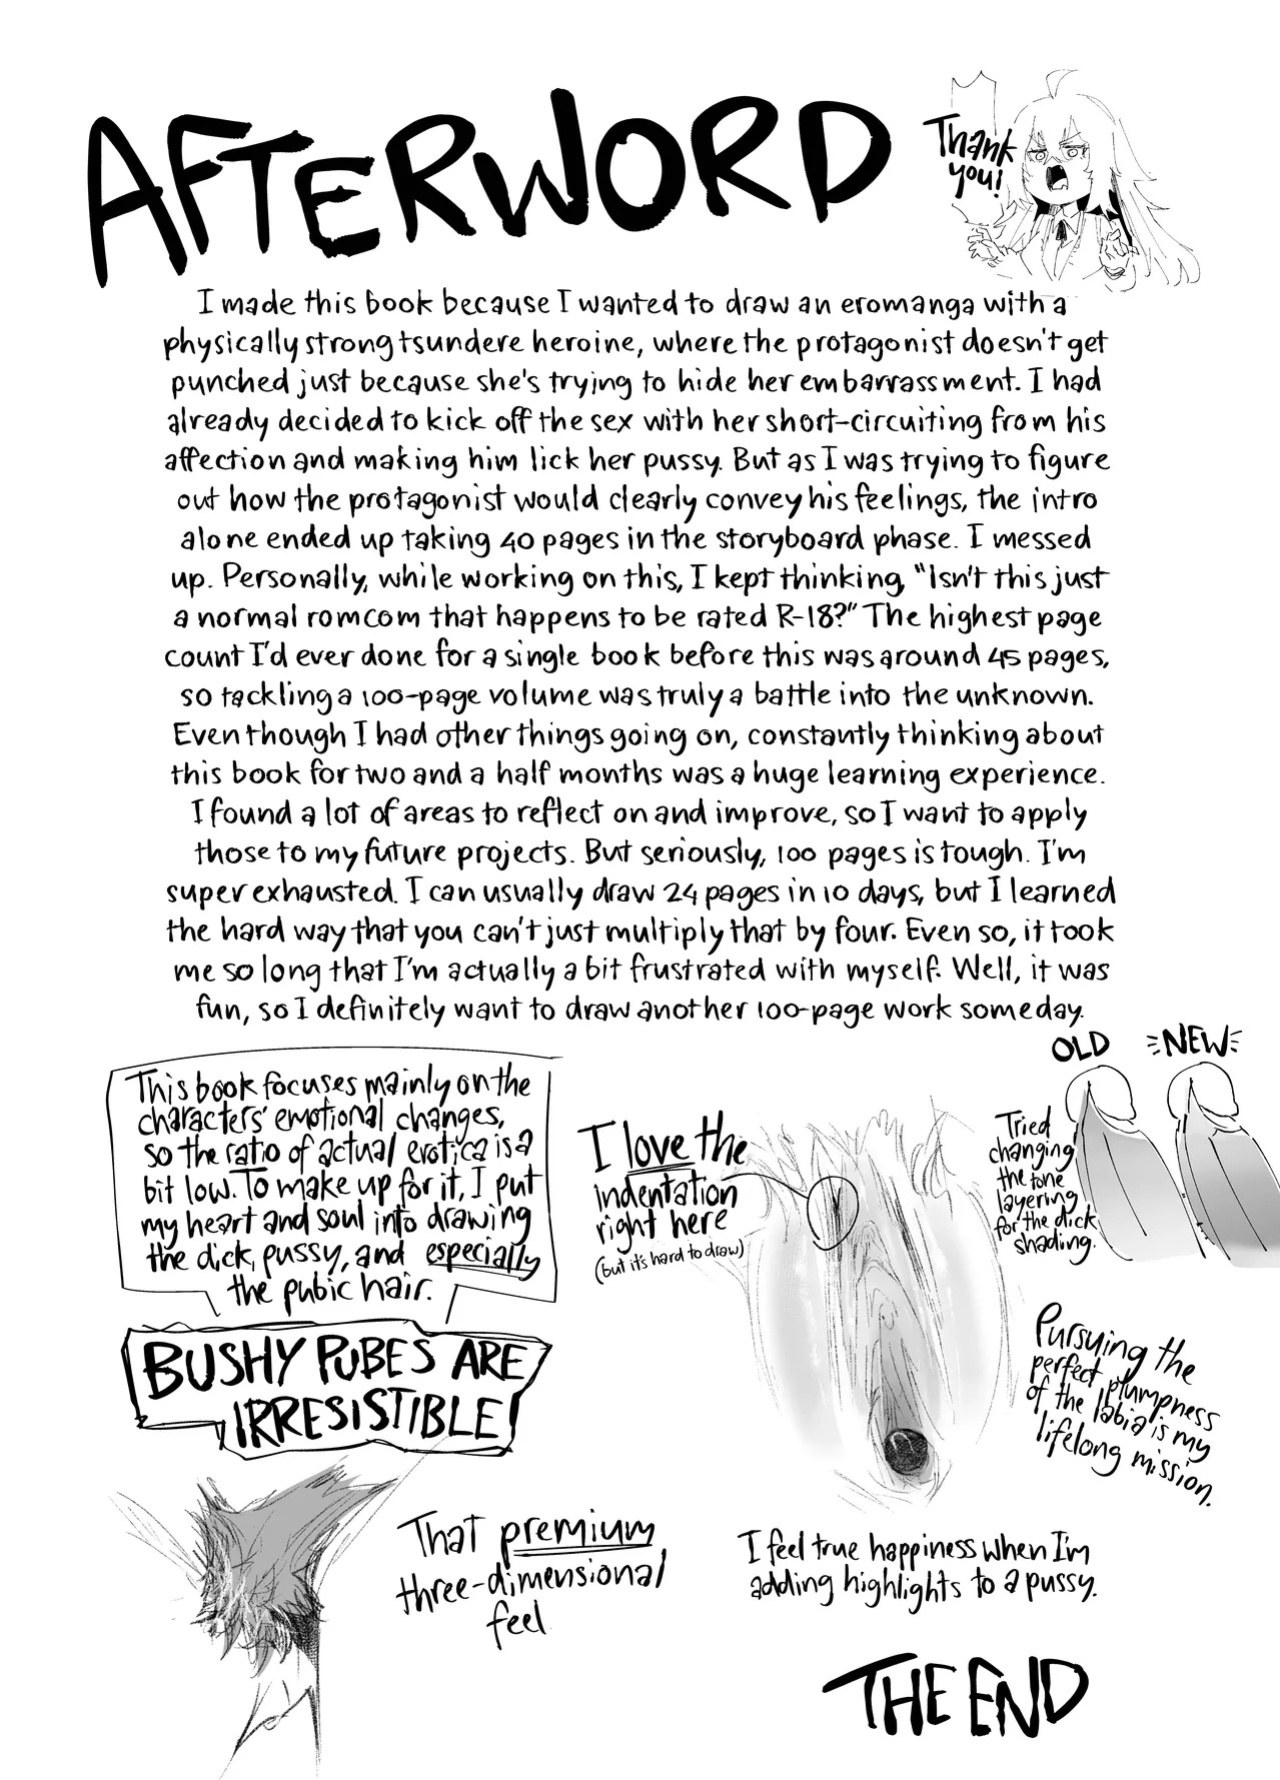 AFTERWORD
Thank
you!
I made this book because I wanted to draw an eromanga with a
physically strong tsundere heroine, where the protagonist doesn't get
punched just because she's trying to hide her embarrassment. I had
already decided to kick off the sex with her short-circuiting from his
affection and making him lick her pussy. But as I was trying to figure
out how the protagonist would clearly convey his feelings, the intro
alone ended up taking 40 pages in the storyboard phase. I messed
up. Personally, while working on this, I kept thinking, "Isn't this just
a normal romcom that happens to be rated R-18?" The highest page
count I'd ever done for a single book before this was around 45 pages,
so tackling a 100-page volume was truly a battle into the unknown.
Even though I had other things going on, constantly thinking about
this book for two and a half months was a huge learning experience.
I found a lot of areas to reflect on and improve, so I want to apply
those to my future projects. But seriously, 100 pages is tough. I'm
super exhausted. I can usually draw 24 pages in 10 days, but I learned
the hard way that you can't just multiply that by four. Even so, it took
me so long that I'm actually a bit frustrated with myself. Well, it was
fun, so I definitely want to draw another 100-page work someday.
This book focuses mainly on the
characters' emotional changes,
so the ratio of actual erotica is a
bit low. To make up for it, I put
my heart and soul into drawing
the dick, pussy, and especially
the pubic hair.
BUSHY PUBES ARE
IRRESISTIBLE
That premium
three-dimensional
feel
I love the
indentation
right here
(but it's hard to draw)
OLD
NEW
Tried
changing
the tone
layering
for the dick
shading.
Pursuing the
perfect plumpness
of the labia is my
lifelong mission.
I feel true happiness when I'm
adding highlights to a pussy.
THE END